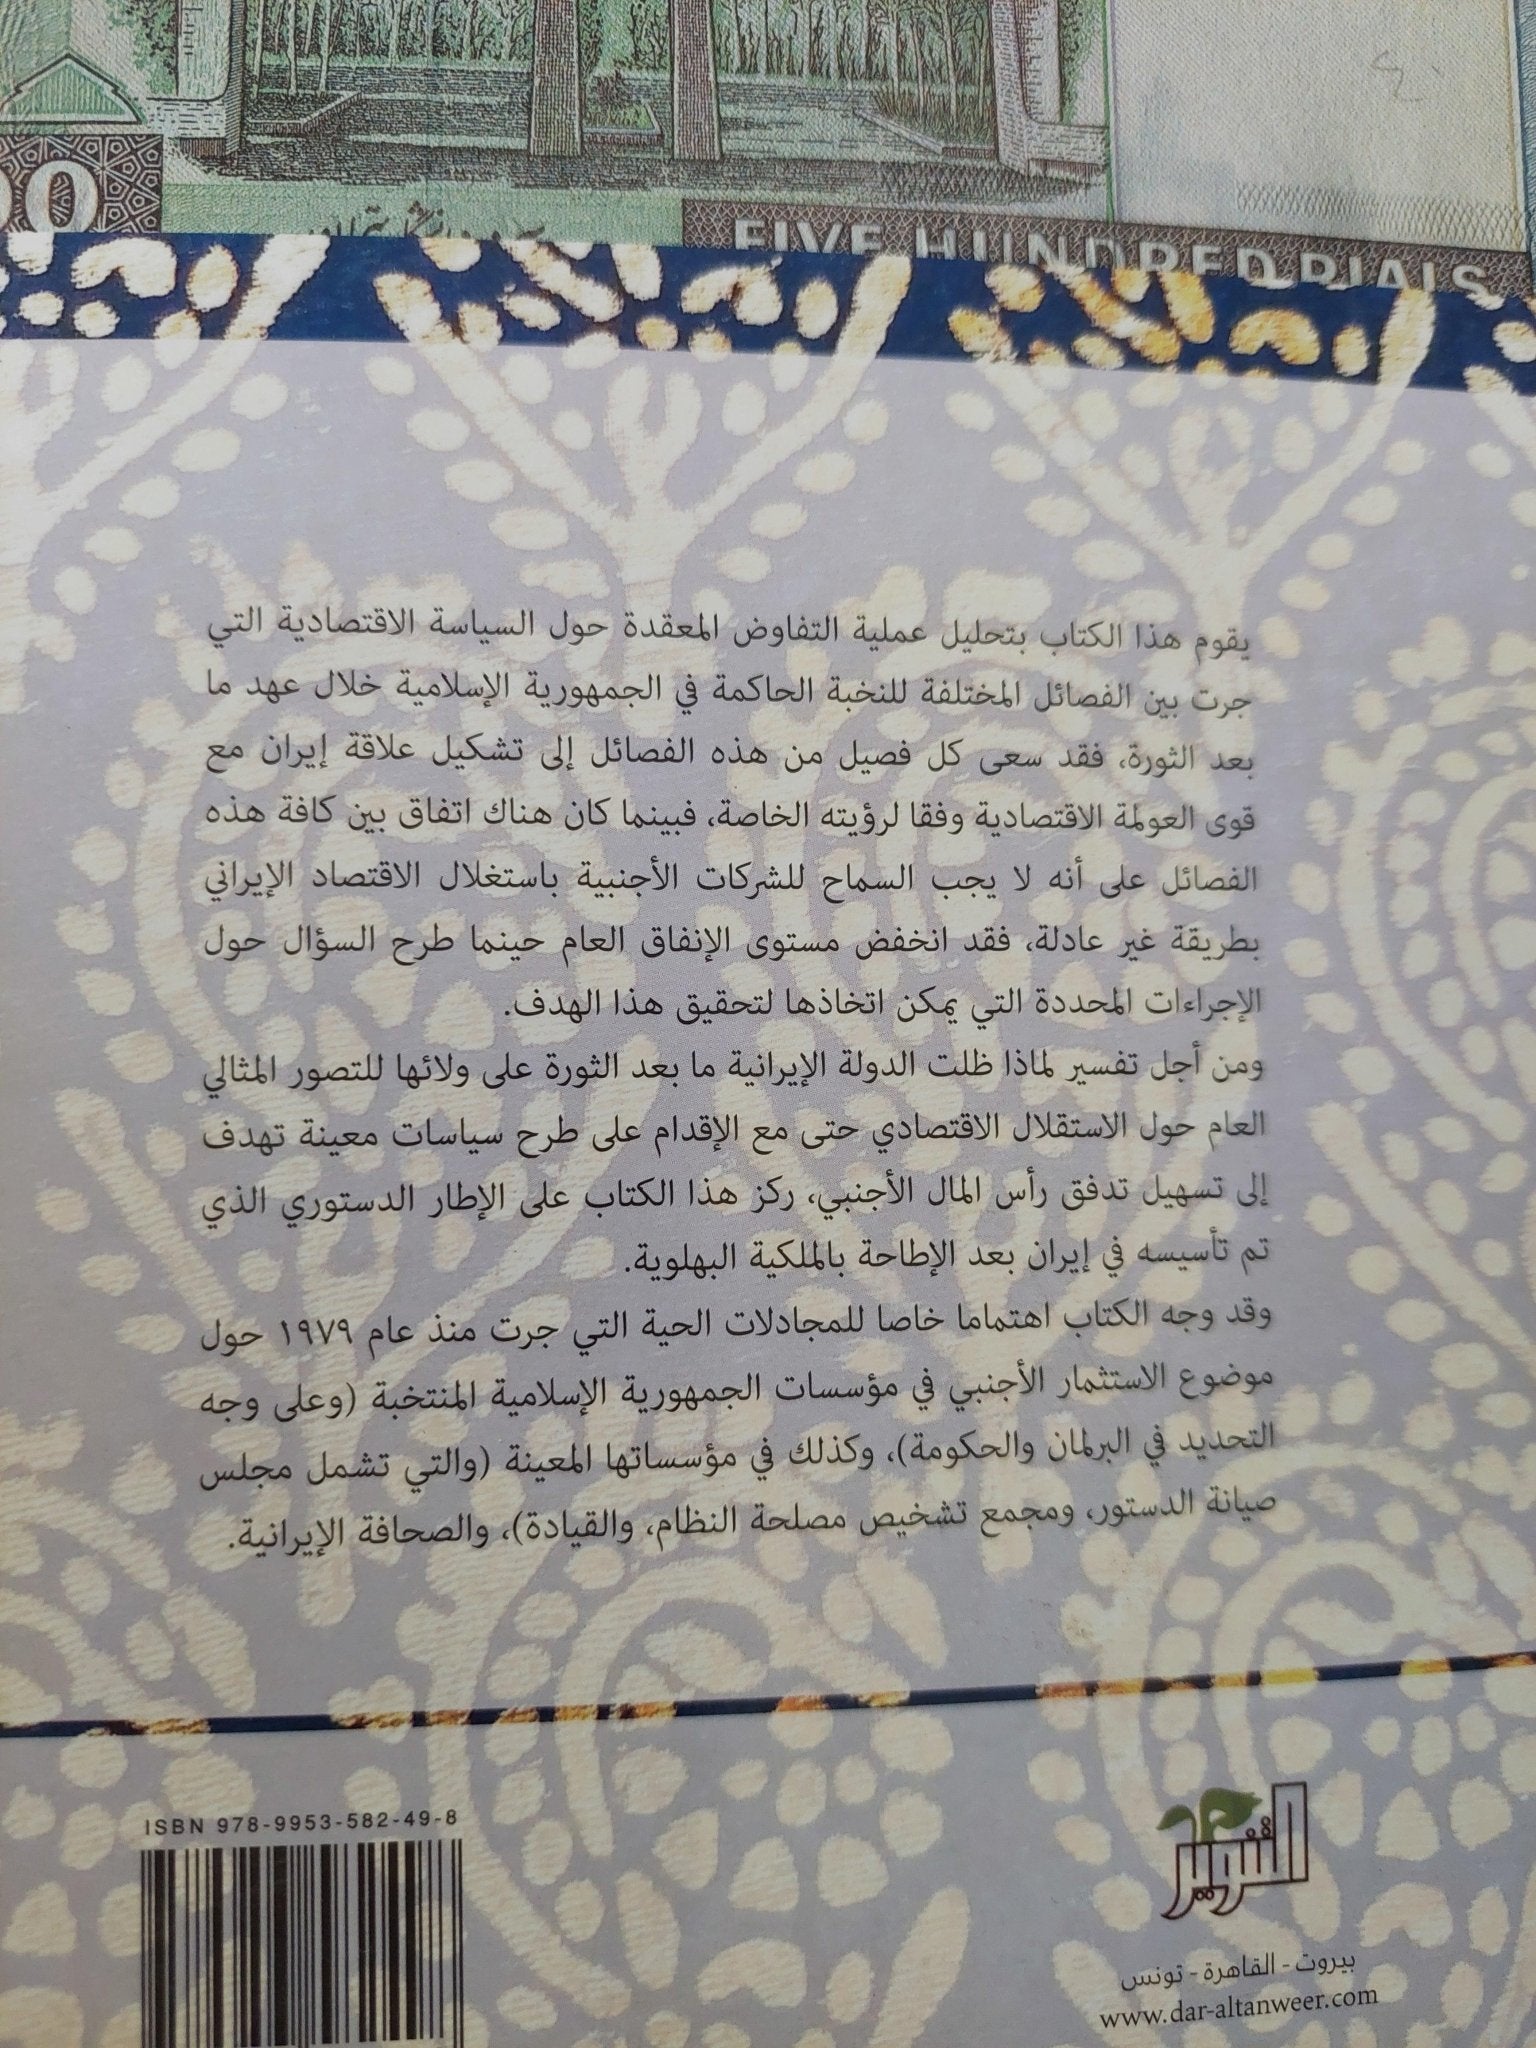 FIVE HUNDRED RIALS
يقوم هذا الكتاب بتحليل عملية التفاوض المعقدة حول السياسة الاقتصادية التي
جرت بين الفصائل المختلفة للنخبة الحاكمة في الجمهورية الإسلامية خلال عهد ما
بعد الثورة، فقد سعى كل فصيل من هذه الفصائل إلى تشكيل علاقة إيران مع
قوى العولمة الاقتصادية وفقا لرؤيته الخاصة، فبينما كان هناك اتفاق بين كافة هذه
الفصائل على أنه لا يجب السماح للشركات الأجنبية باستغلال الاقتصاد الإيراني
بطريقة غير عادلة، فقد انخفض مستوى الإنفاق العام حينما طرح السؤال حول
الإجراءات المحددة التي يمكن اتخاذها لتحقيق هذا الهدف.
ومن أجل تفسير لماذا ظلت الدولة الإيرانية ما بعد الثورة على ولائها للتصور المثالي
العام حول الاستقلال الاقتصادي حتى مع الإقدام على طرح سياسات معينة تهدف
إلى تسهيل تدفق رأس المال الأجنبي، ركز هذا الكتاب على الإطار الدستوري الذي
تم تأسيسه في إيران بعد الإطاحة بالملكية البهلوية.
وقد وجه الكتاب اهتماما خاصا للمجادلات الحية التي جرت منذ عام ١٩٧٩ حول
موضوع الاستثمار الأجنبي في مؤسسات الجمهورية الإسلامية المنتخبة (وعلى وجه
التحديد في البرلمان والحكومة)، وكذلك في مؤسساتها المعينة (والتي تشمل مجلس
صيانة الدستور، ومجمع تشخيص مصلحة النظام، والقيادة)، والصحافة الإيرانية.
ISBN 978-9953-582-49-8
التنوير
بيروت - القاهرة - تونس
www.dar-altanweer.com